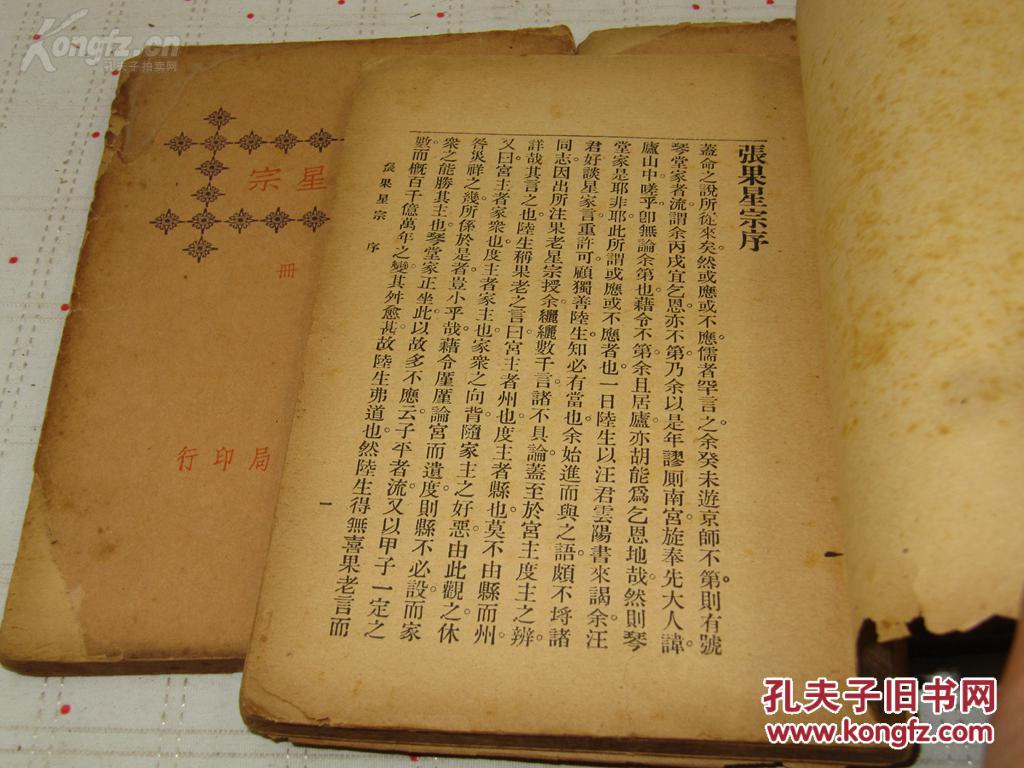 張果星宗序
蓋命之說所從來矣。然或應或不應。儒者罕言之。余癸未遊京師不第。則有號
琴堂家者流。謂余丙戌宜乞恩。亦不第。乃余以是年謬廁南宮。旋奉先大人諱。
廬山中。嗟乎。卽無論余第也。藉令不第。余且居廬。亦胡能爲乞恩地哉。然則琴
堂家是耶非耶。此所謂或應或不應者也。一日陸生以汪君雲陽書來謁余。汪
君好談星家言。重許可。顧獨善陸生。知必有當也。余始進而與之語。頗不埒諸
同志。因出所注果老星宗授余。纚纚數千言。諸不具論。蓋至於宮主度主之辨。
詳哉其言之也。陸生稱果老之言曰。宮主者州也。度主者縣也。莫不由縣而州。
又曰。宮主者家衆也。度主者家主也。家衆之向背。隨家主之好惡。由此觀之。休
咎災祥之幾。所係於是者。豈小乎哉。藉令厪厪論宮而遺度。則縣不必設。而家
衆之能勝其主也。琴堂家正坐此。以故多不應云。子平者流。又以甲子一定之
數。而概百千億萬年之變。其舛愈甚。故陸生弗道也。然陸生得無喜果老言而
張果星宗 序
一
星宗
冊
局印行
Kongfz.cn
孔夫子拍卖网
孔夫子旧书网
www.kongfz.com